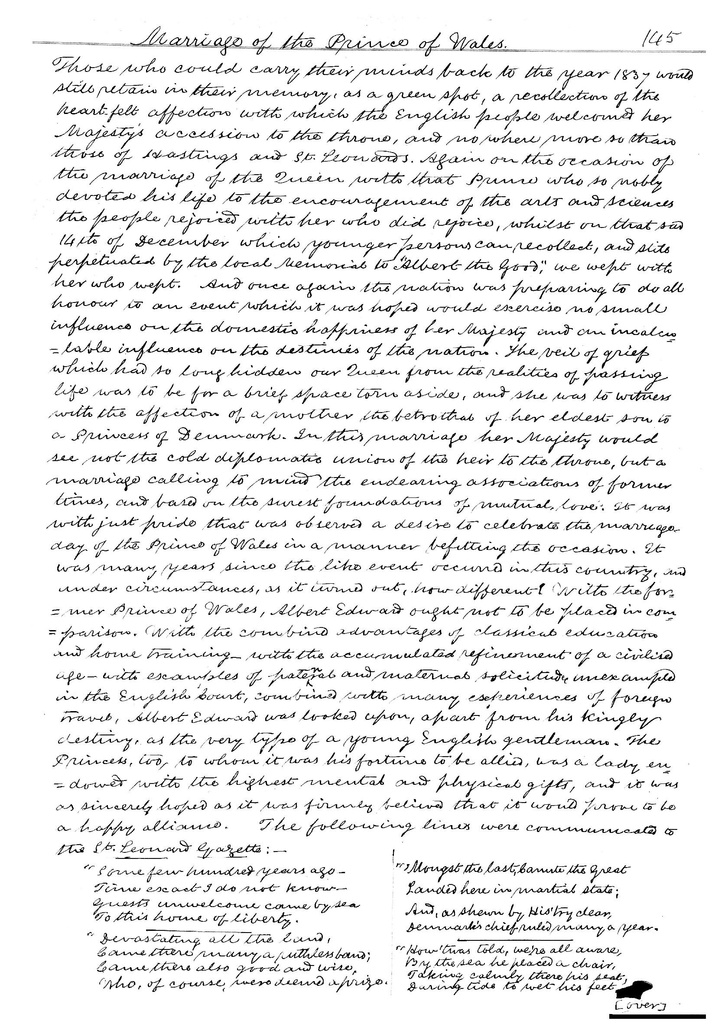 Marriage of the Prince of Wales. 145
Those who could carry their minds back to the year 1837 would
still retain in their memory, as a green spot, a recollection of the
heart-felt affection with which the English people welcomed her
Majesty's accession to the throne, and no where more so than
those of Hastings and St. Leonards. Again on the occasion of
the marriage of the Queen with that Prince who so nobly
devoted his life to the encouragement of the arts and sciences
the people rejoiced with her who did rejoice, whilst on that sad
14th of December which younger persons can recollect, and still
perpetuated by the local Memorial to "Albert the Good," we wept with
her who wept. And once again the nation was preparing to do all
honour to an event which it was hoped would exercise no small
influence on the domestic happiness of her Majesty and an incalcu
=lable influence on the destinies of the nation. The veil of grief
which had so long hidden our Queen from the realities of passing
life was to be for a brief space torn aside, and she was to witness
with the affection of a mother the betrothal of her eldest son to
a Princess of Denmark. In this marriage her Majesty would
see not the cold diplomatic union of the heir to the throne, but a
marriage calling to mind the endearing associations of former
times, and based on the surest foundations of mutual love. It was
with just pride that was observed a desire to celebrate the marriage
day of the Prince of Wales in a manner befitting the occasion. It
was many years since the like event occurred in this country, and
under circumstances, as it turned out, how different! With the for=
=mer Prince of Wales, Albert Edward ought not to be placed in com
=parison. With the combined advantages of classical education
and home training – with the accumulated refinement of a civilized
age – with examples of paternal and maternal solicitude unexampled
in the English Court, combined with many experiences of foreign
travel, Albert Edward was looked upon, apart from his kingly
destiny, as the very type of a young English gentleman. The
Princess, too, to whom it was his fortune to be allied, was a lady en
=dowed with the highest mental and physical gifts, and it was
as sincerely hoped as it was firmly believed that it would prove to be
a happy alliance. The following lines were communicated to
the St. Leonard Gazette:–
"Some few hundred years ago –
Time exact I do not know –
Guests unwelcome came by sea
To this home of liberty.
"Devastating all the land,
Came there many a ruthless band;
Came there also good and wise,
Who, of course, were deemed a prize.
"'Mongst the last, Canute the Great
Landed here in martial state;
And, as shewn by His'try clear,
Denmark's chief ruled many a year.
"How 'twas told, we're all aware,
By the sea he placed a chair,
Taking calmly there his seat,
During tide to wet his feet
[over]